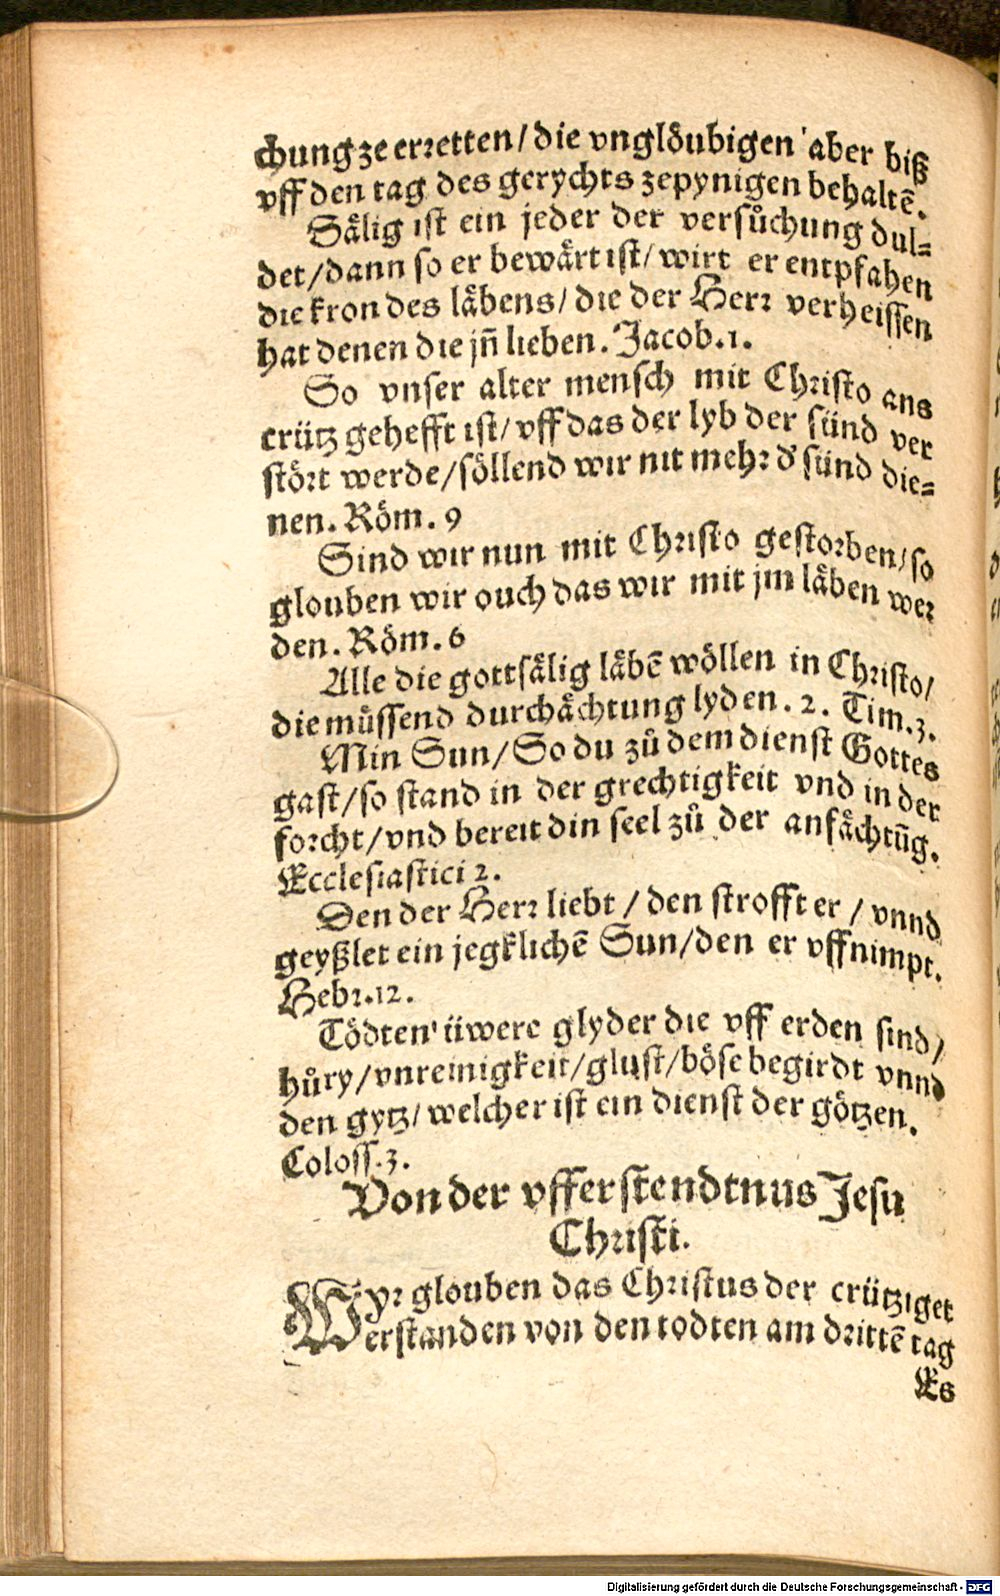 chung ze erretten/ die vnglöubigen aber biß
vff den tag des gerychts zepynigen behaltē.
Sälig ist ein jeder der versůchung dul-
det/ dann so er bewärt ist/ wirt er entpfahen
die kron des läbens/ die der Herr verheissen
hat denen die jn̄ lieben. Jacob. 1.
So vnser alter mensch mit Christo ans
crütz gehefft ist/ vff das der lyb der sünd ver
stört werde/ söllend wir nit mehr d' sünd die-
nen. Röm. 9
Sind wir nun mit Christo gestorben/ so
glouben wir ouch das wir mit jm läben wer
den. Röm. 6
Alle die gottsälig läbē wöllen in Christo/
die müssend durchächtung lyden. 2. Tim. 3.
Min Sun/ So du zů dem dienst Gottes
gast/ so stand in der grechtigkeit vnd in der
forcht/ vnd bereit din seel zů der anfächtūg.
Ecclesiastici 2.
Den der Herr liebt / den strofft er / vnnd
geyßlet ein jegklichē Sun/ den er vffnimpt.
Hebr. 12.
Tödten üwere glyder die vff erden sind/
hůry/ vnreinigkeit/ glust/ böse begirdt vnnd
den gytz/ welcher ist ein dienst der götzen.
Coloss. 3.
Von der vfferstendtnus Jesu
Christi.
Wyr glouben das Christus der crütziget
erstanden von den todten am drittē tag
Es
Digitalisierung gefördert durch die Deutsche Forschungsgemeinschaft - DFG